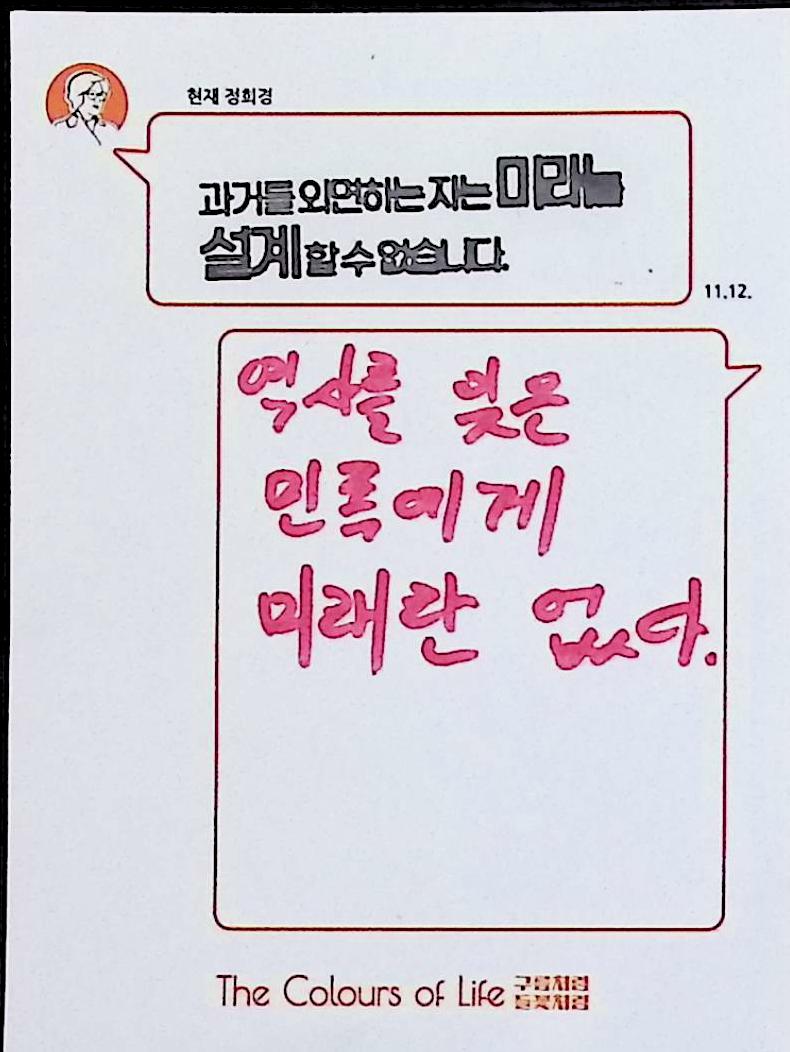 현재 정희경
과거를 외면하는 자는 미래를
설계할 수 없습니다.
11.12.
역사를 잊은
민족에게
미래란 없다.
The Colours of Life 구름처럼
들꽃처럼